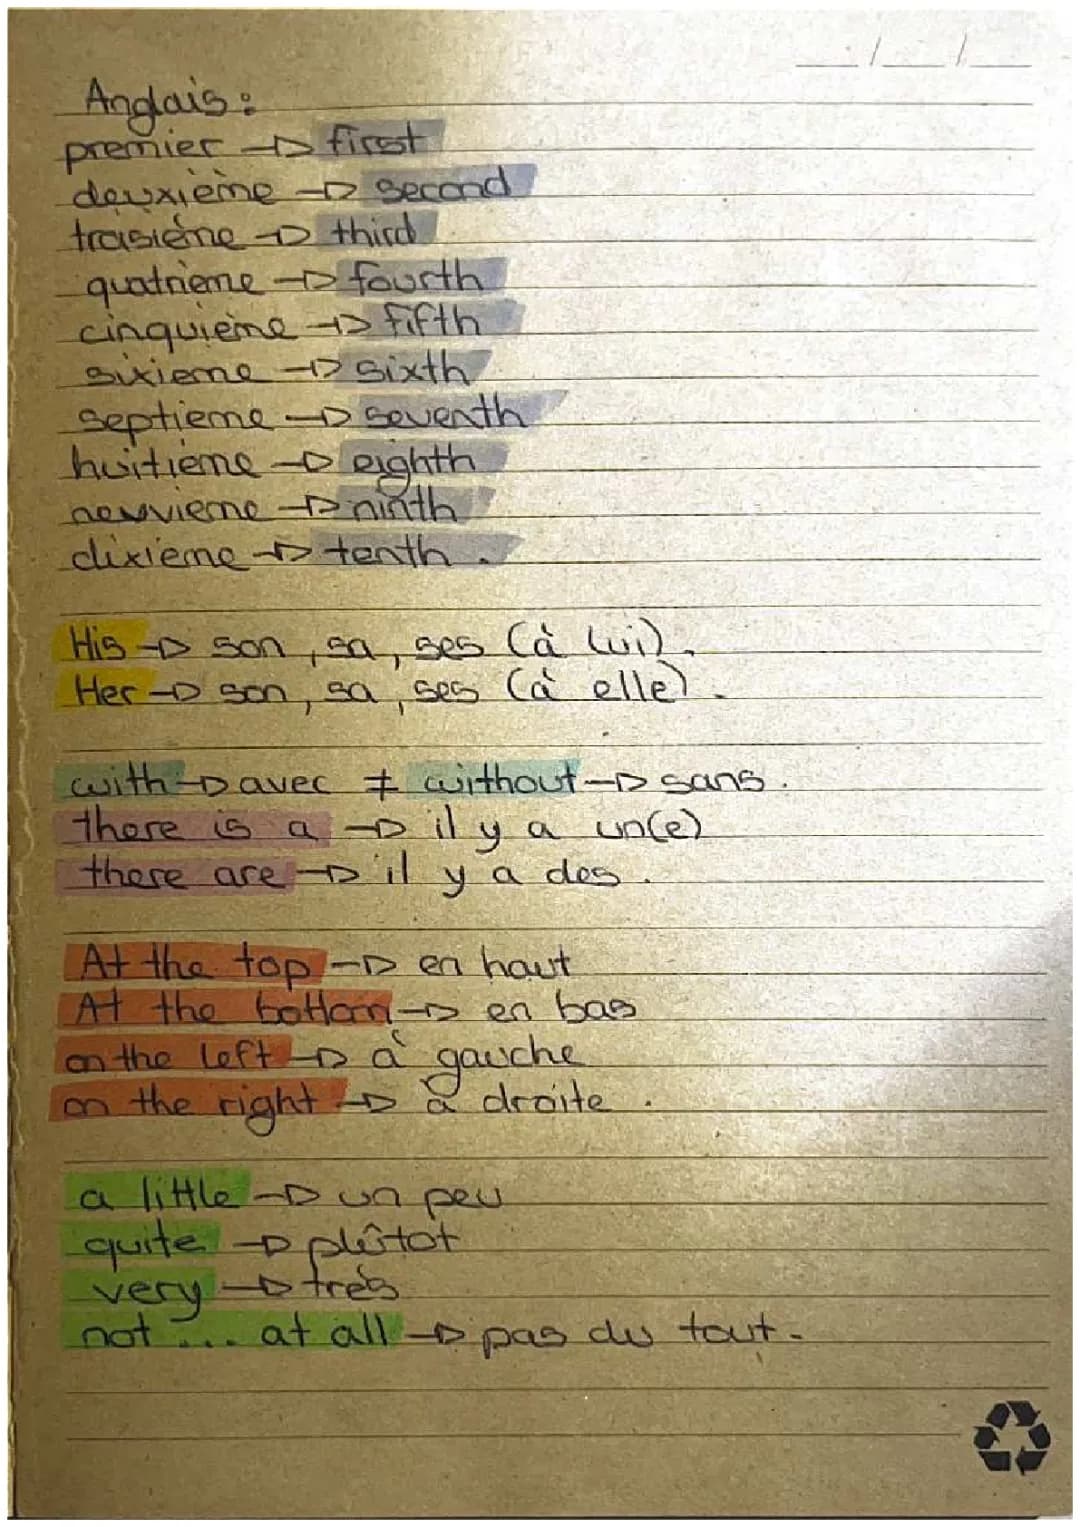 Anglais :
premier → first
deuxième → second
troisième → third
quatrième → fourth
cinquième → fifth
sixieme → sixth
septieme → seventh
huitieme → eighth
neuvieme → ninth
dixieme → tenth .
His → son , sa , ses (à lui) .
Her → son , sa , ses (à elle) .
with → avec ≠ without → sans .
there is a → il y a un(e)
there are → il y a des .
At the top → en haut
At the bottom → en bas
on the left → à gauche
on the right → à droite .
a little → un peu
quite → plûtot
very → très
not ... at all → pas du tout .